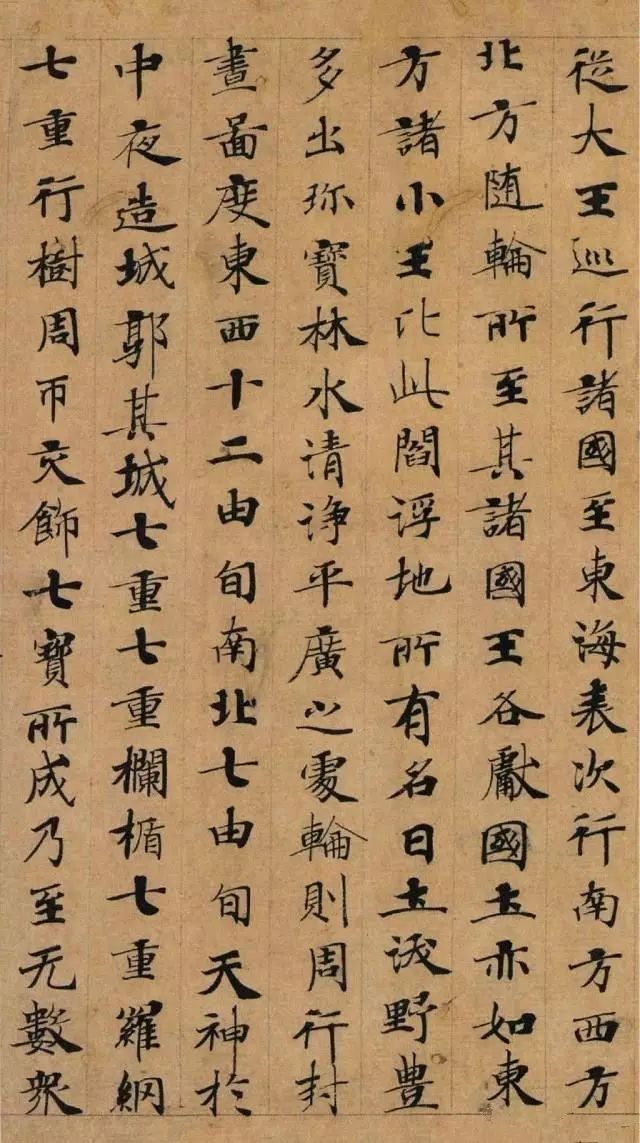 從大王巡行諸國至東海表次行南方西方
北方随輪所至其諸國王各獻國土亦如東
方諸小王比此閻浮地所有名曰土沃野豊
多出珎寶林水清浄平廣之處輪則周行封
畫啚度東西十二由旬南北七由旬天神於
中夜造城郭其城七重七重欄楯七重羅網
七重行樹周帀交飾七寶所成乃至无數衆